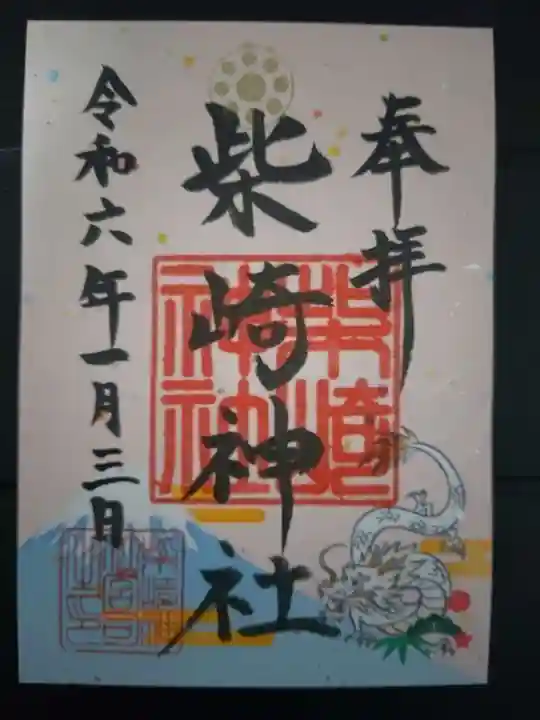 奉拝
柴崎神社
令和六年一月三日
柴崎神社